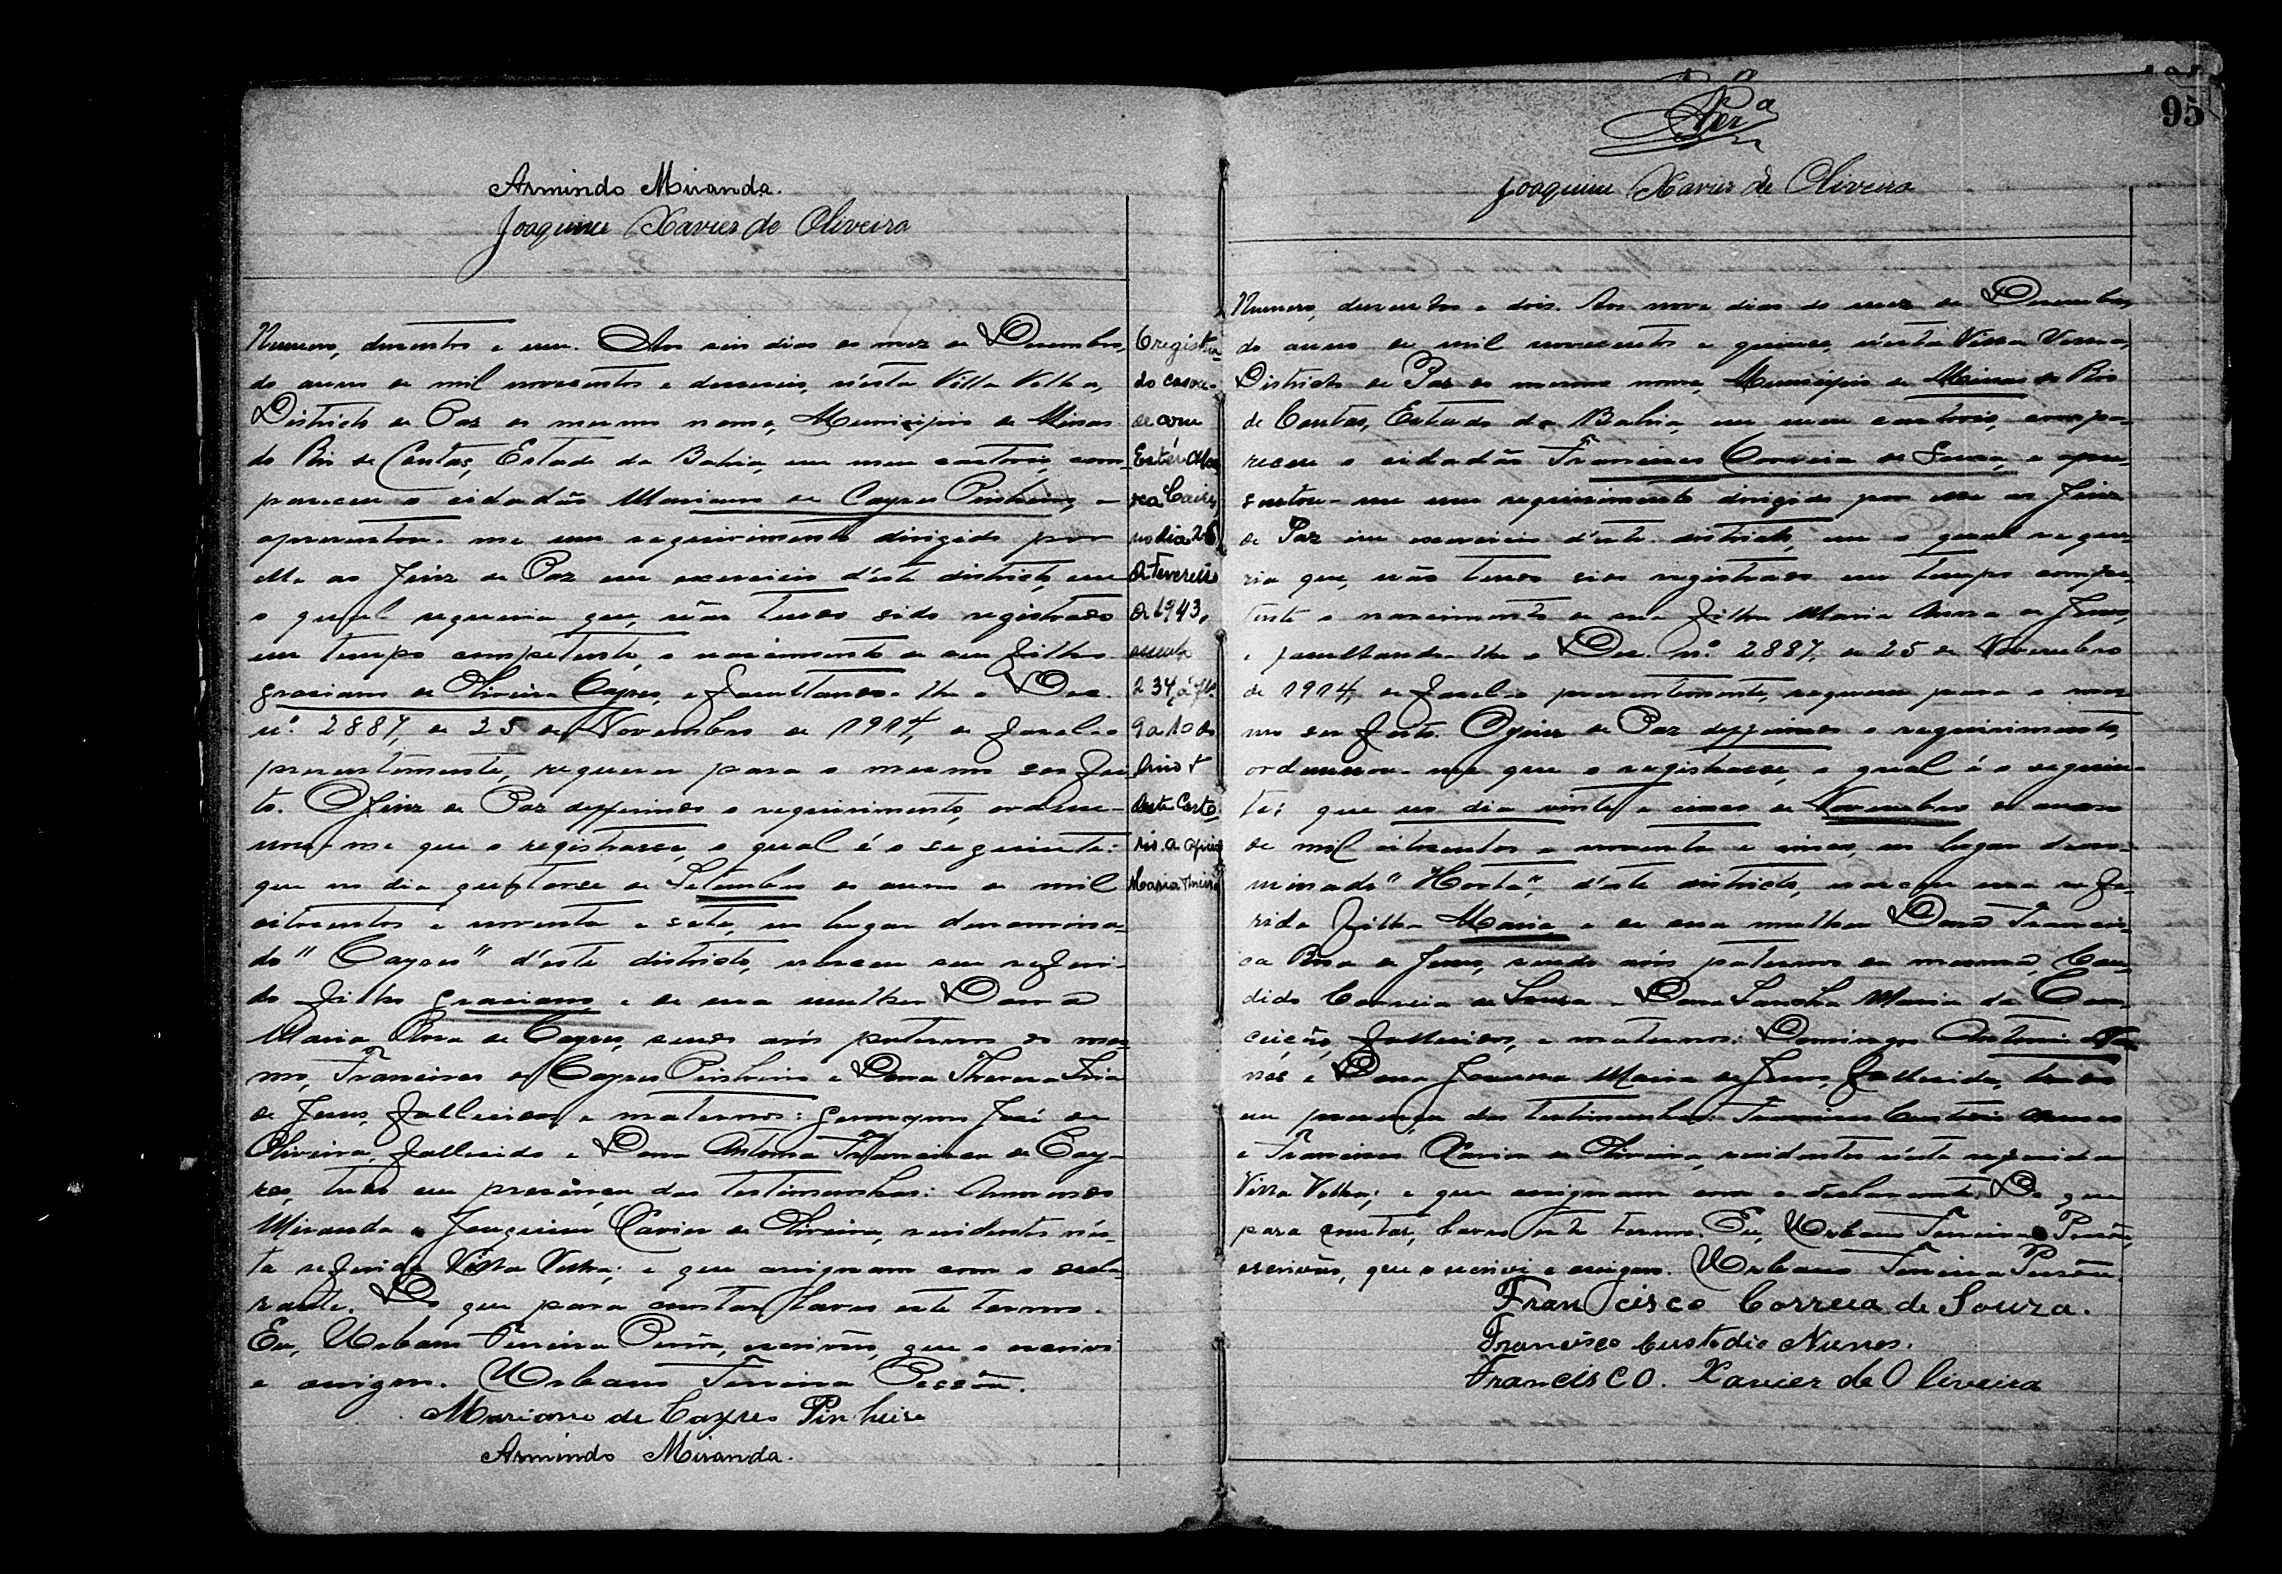 Armindo Miranda.
Joaquim Xavier de Oliveira
Numero, dusentos e um. Aos seis dias do mez de Dezembro,
do anno de mil novecentos e, n'esta Villa Velha,
Districto de Paz do mesmo nome, Municipio de Minas
do Rio de Contas, Estado da Bahia, em meu cartorio, com-
pareceu o cidadão Mariano de Cayres Pinheiro, e
apresentou-me um requerimento dirigido por
elle ao Juiz de Paz em exercicio d'este districto, em
o qual requeria que, não tendo sido registrado
em tempo competente, o nascimento de seu filho
Graciano de Oliveira Cayres, e facultando-lhe o Dec.
nº 2887, de 25 de Novembro de 1914, de fazel-o
presentemente, requerer para o mesmo ser fei-
to. O Juiz de Paz defferindo o requerimento, ordenou-
me que o registrasse, o qual é o seguinte:
que no dia quatorze de Setembro do anno de mil
oitocentos e noventa e sete, no lugar denomina-
do "Cayres" d'este districto, nasceu seu referi-
do filho Graciano, e de sua mulher Dona
Maria Rosa de Cayres, sendo avós paternos do mes-
mo, Francisco de Cayres Pinheiro e Dona Thereza
de Jesus, fallecidos, e maternos: José de
Oliveira, fallecido e Dona Antonia Francisca de Cay-
res, tudo em presença das testimunhas: Armindo
Miranda e Joaquim Xavier de Oliveira, residentes n'es-
ta referida Villa Velha; e que assignam com o decla-
rante. Do que para constar, lavro este termo.
Eu, Urbano Ferreira Pessôa, escrivão, que o escrevi
e assigno. Urbano Ferreira Pessôa.
Mariano de Cayres Pinheiro
Armindo Miranda.
O registra-
do casou-
se com
Ester
Caires
no dia 26
de Fevereiro
de 1943,
234 á fls.
9 a 10 do
livro
deste Carto-
rio. a
Maria
95
Joaquim Xavier de Oliveira
Numero, dusentos e dois. Aos nove dias do mez de Dezembro,
do anno de mil novecentos e, n'esta Villa Velha,
Districto de Paz do mesmo nome, Municipio de Minas do Rio
de Contas, Estado da Bahia, em meu cartorio, compa-
receu o cidadão Francisco Correia de Souza, e apre-
sentou-me um requerimento dirigido por elle ao Juiz
de Paz em exercicio d'este districto, em o qual reque-
ria que, não tendo sido registrado em tempo compe-
tente o nascimento de sua filha Maria Anna de Jesus,
e facultando-lhe o Dec. nº 2887, de 25 de Novembro
de 1914, de fazel-o presentemente, requereu para o mes-
mo ser feito. O Juiz de Paz defferindo o requerimento,
ordenou-me que o registrasse, o qual é o seguin-
te: que no dia vinte e cinco de Novembro do anno
de mil oitocentos e noventa e cinco, no lugar deno-
minado "Horta", d'este districto, nasceu sua refe-
rida filha Maria, e de sua mulher Dona Francis-
ca Rosa de Jesus, sendo avós paternos da mesma, Can-
dido Correia de Souza e Dona Maria da Con-
ceição, fallecidos, e maternos: Domingos Antonio
e Dona Maria de Jesus, fallecida, tudo
em presença das testimunhas: Francisco Custodio Nunes
e Francisco Xavier de Oliveira, residentes n'esta referida
Villa Velha; e que assignam com o declarante. Do que
para constar, lavro este termo. Eu, Urbano Ferreira Pessôa,
escrivão, que o escrevi e assigno. Urbano Ferreira Pessôa.
Francisco Correia de Souza.
Francisco Custodio Nunes.
Francisco. Xavier de Oliveira